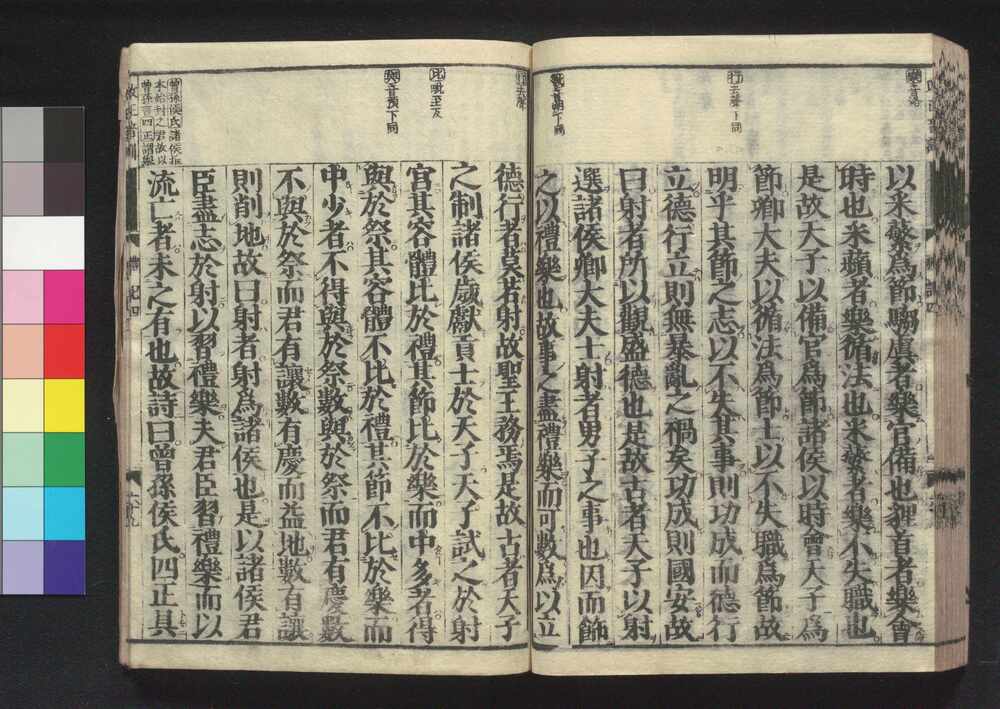 樂音洛
行去聲下同
數音朔下同
以采蘩爲節騶虞者樂官備也貍首者樂會
時也采蘋者樂循法也采蘩者樂不失職也
是故天子以備官爲節諸侯以時會天子爲
節卿大夫以循法爲節士以不失職爲節故
明乎其節之志以不失其事則功成而德行
立德行立則無暴亂之禍矣功成則國安故
曰射者所以觀盛德也是故古者天子以射
選諸侯卿大夫士射者男子之事也因而飾
之以禮樂也故事之盡禮樂而可數爲以立
行去聲
比毗至反
與音預下同
曾孫侯氏諸侯
德行者莫若射故聖王務焉是故古者天子
之制諸侯歲獻貢士於天子天子試之於射
宮其容體比於禮其節比於樂而中多者得
與於祭其容體不比於禮其節不比於樂而
中少者不得與於祭數與於祭而君有慶數
不與於祭而君有讓數有慶而益地數有讓
則削地故曰射者射爲諸侯也是以諸侯君
臣盡志於射以習禮樂夫君臣習禮樂而以
流亡者未之有也故詩曰曾孫侯氏四正具
禮記四